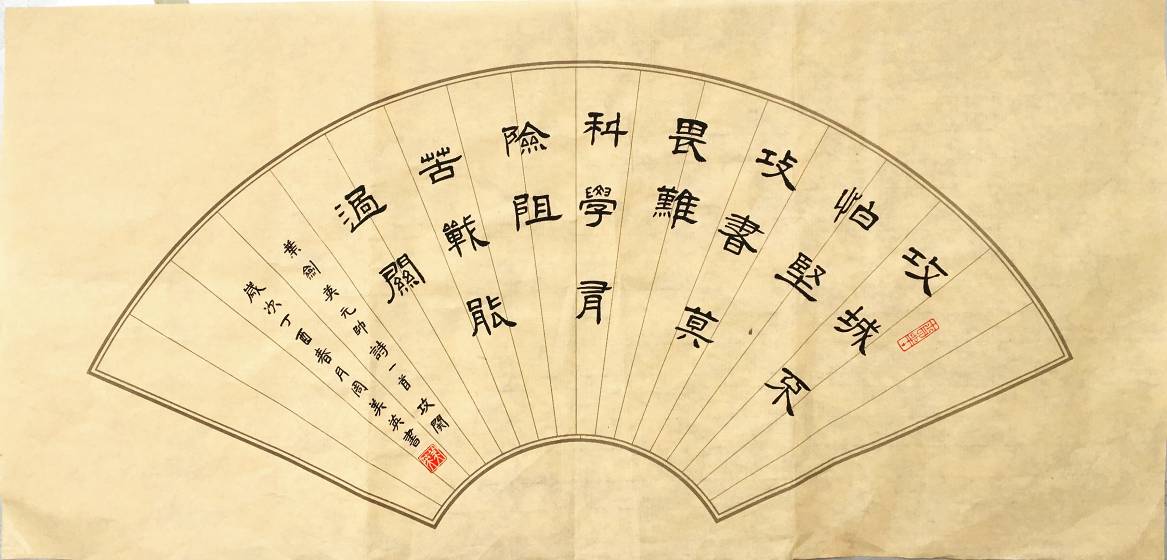 攻城不
怕堅
攻書莫
畏難
科學有
險阻
苦戰能
過關
葉劍英元帥詩一首 攻關
歲次丁酉春月周美英書